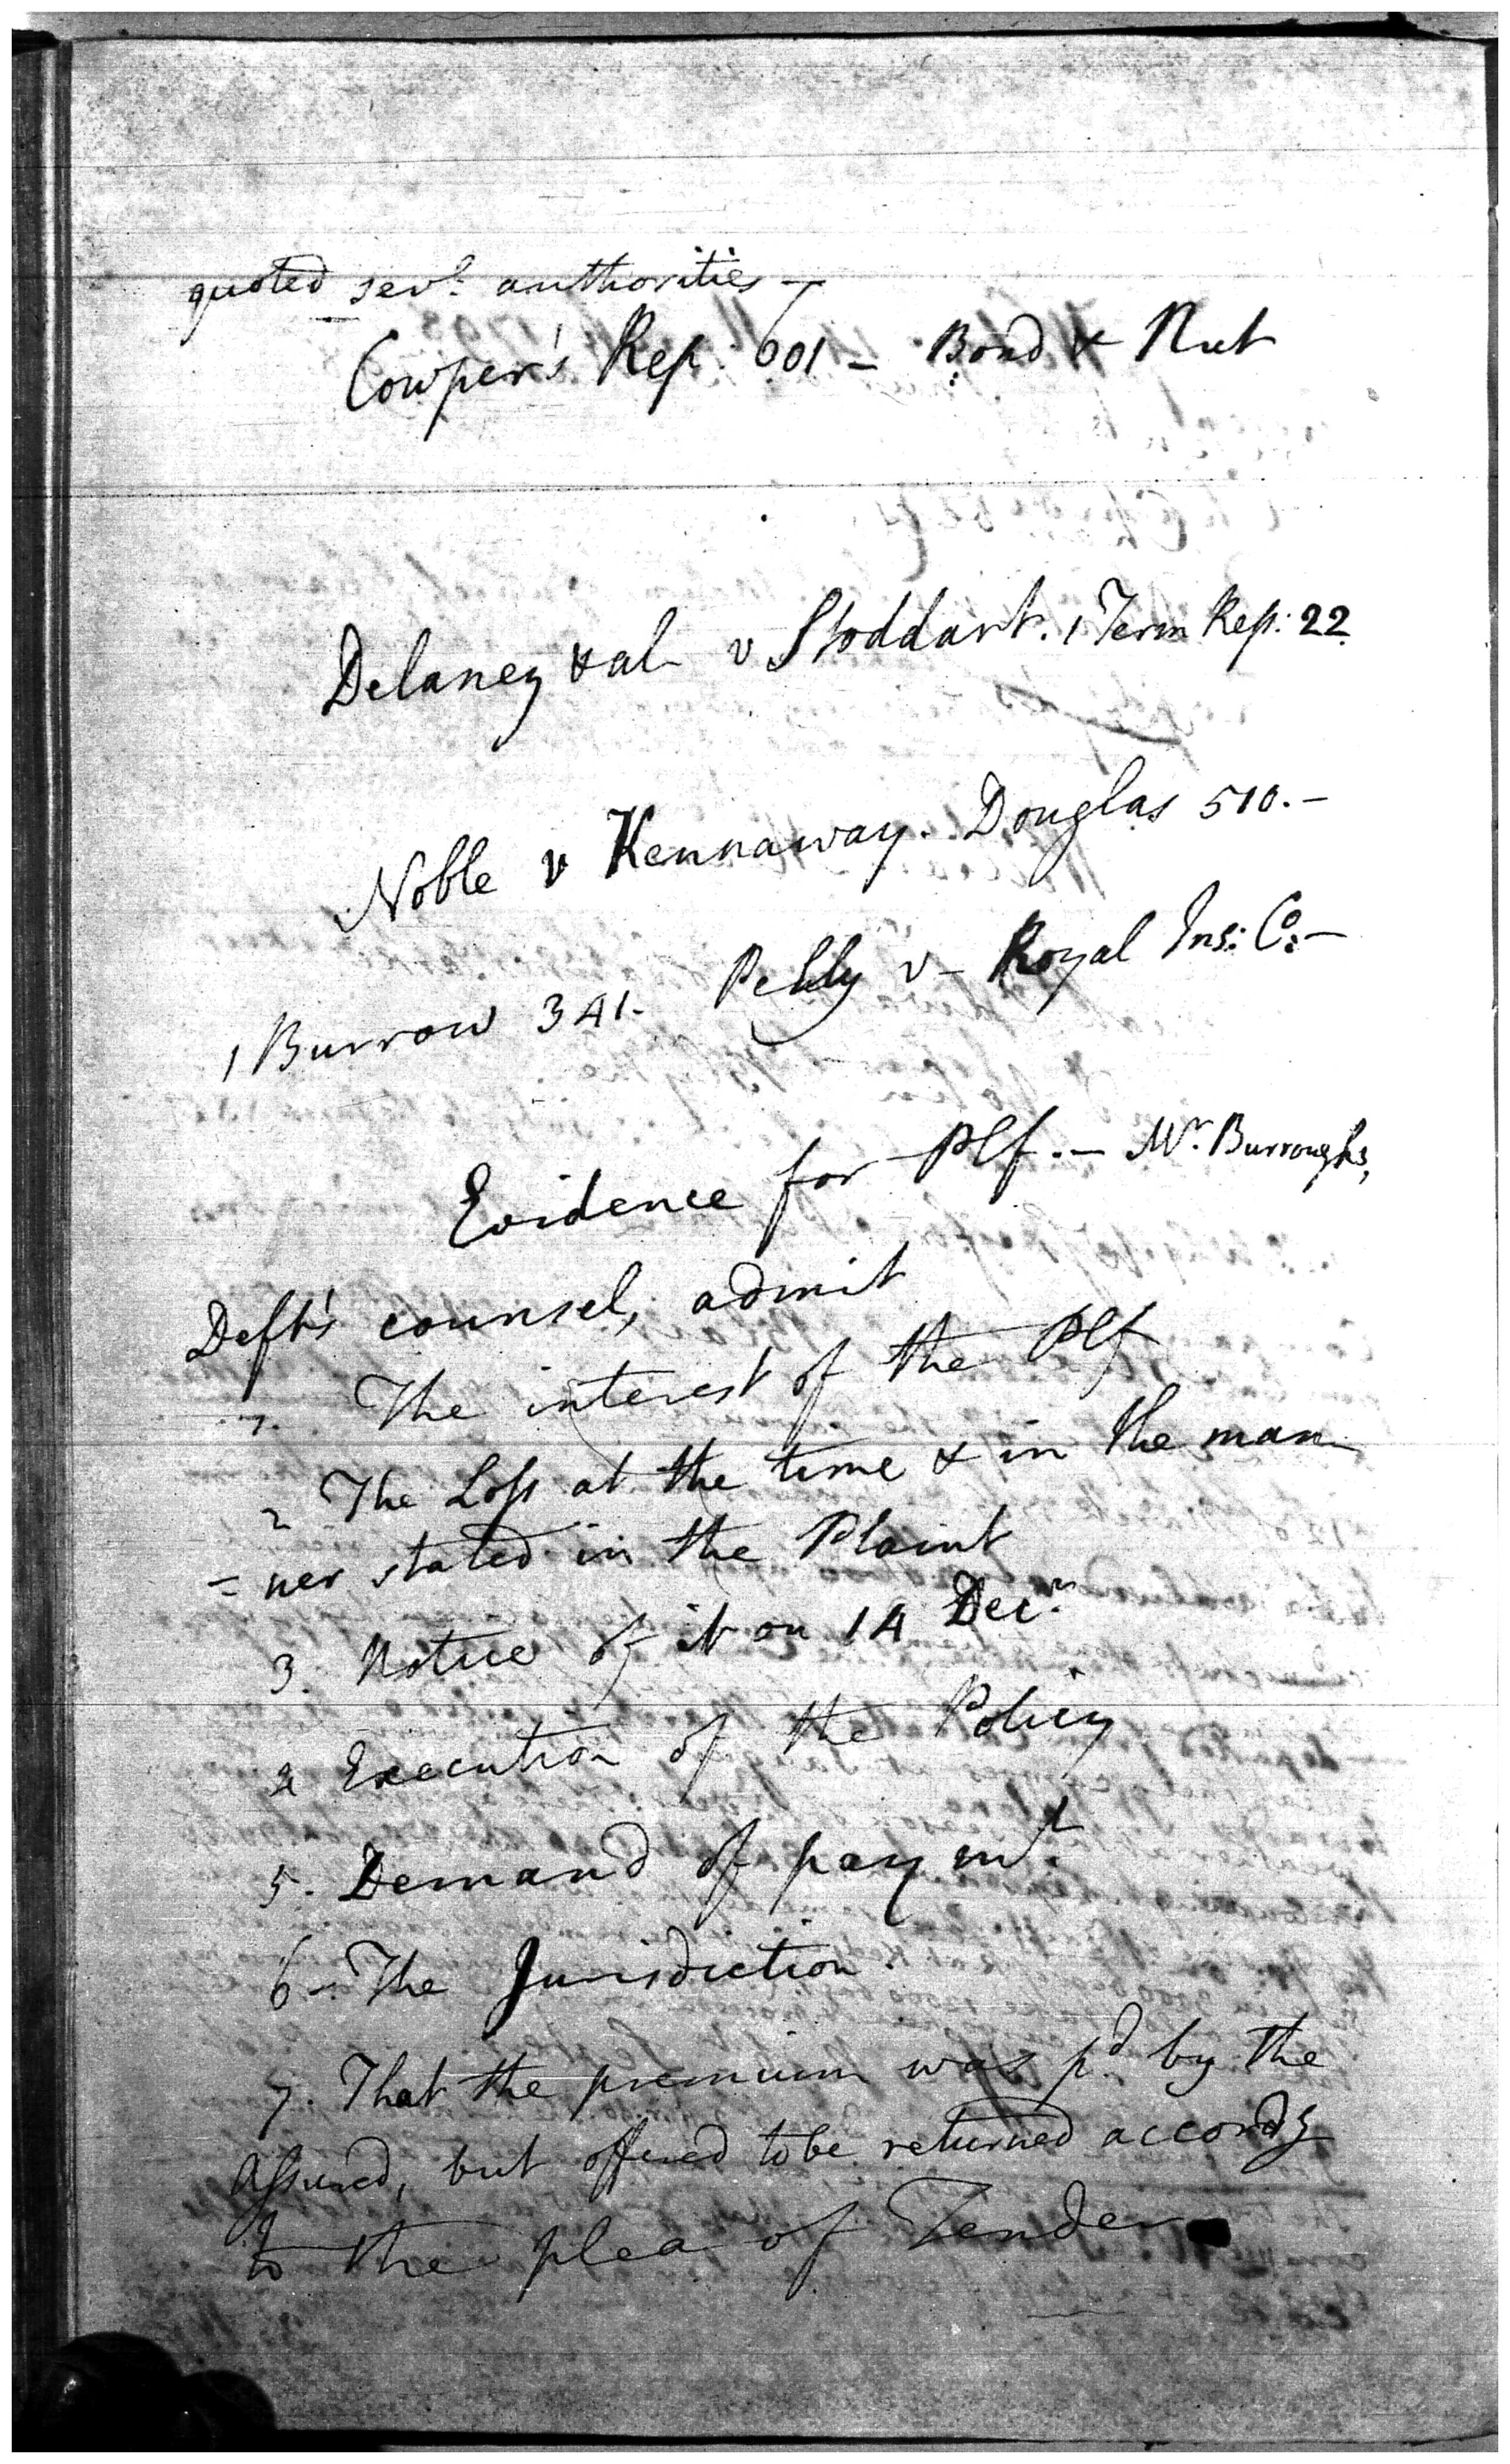 quoted sevl. authorities —
Cowper's Rep: 601 — Bond & Nut
Delaney & al v Stoddart. 1 Term Rep: 22
Noble v Kennaway. Douglas 510.—
1 Burrow 341. Pelly v — Royal Ins: Co:—
Evidence for Plf. — Mr. Burroughs,
Deft's counsel, admit
1. The interest of the Plf
2 The Loss at the time & in the man
= ner stated in the Plaint
3. Notice of it on 14 Decr.
4 Execution of the Policy
5. Demand of paymt.
6 — The Jurisdiction.
7. That the premium was pd. by the
assured, but offered to be returned accordg
to the plea of Tender